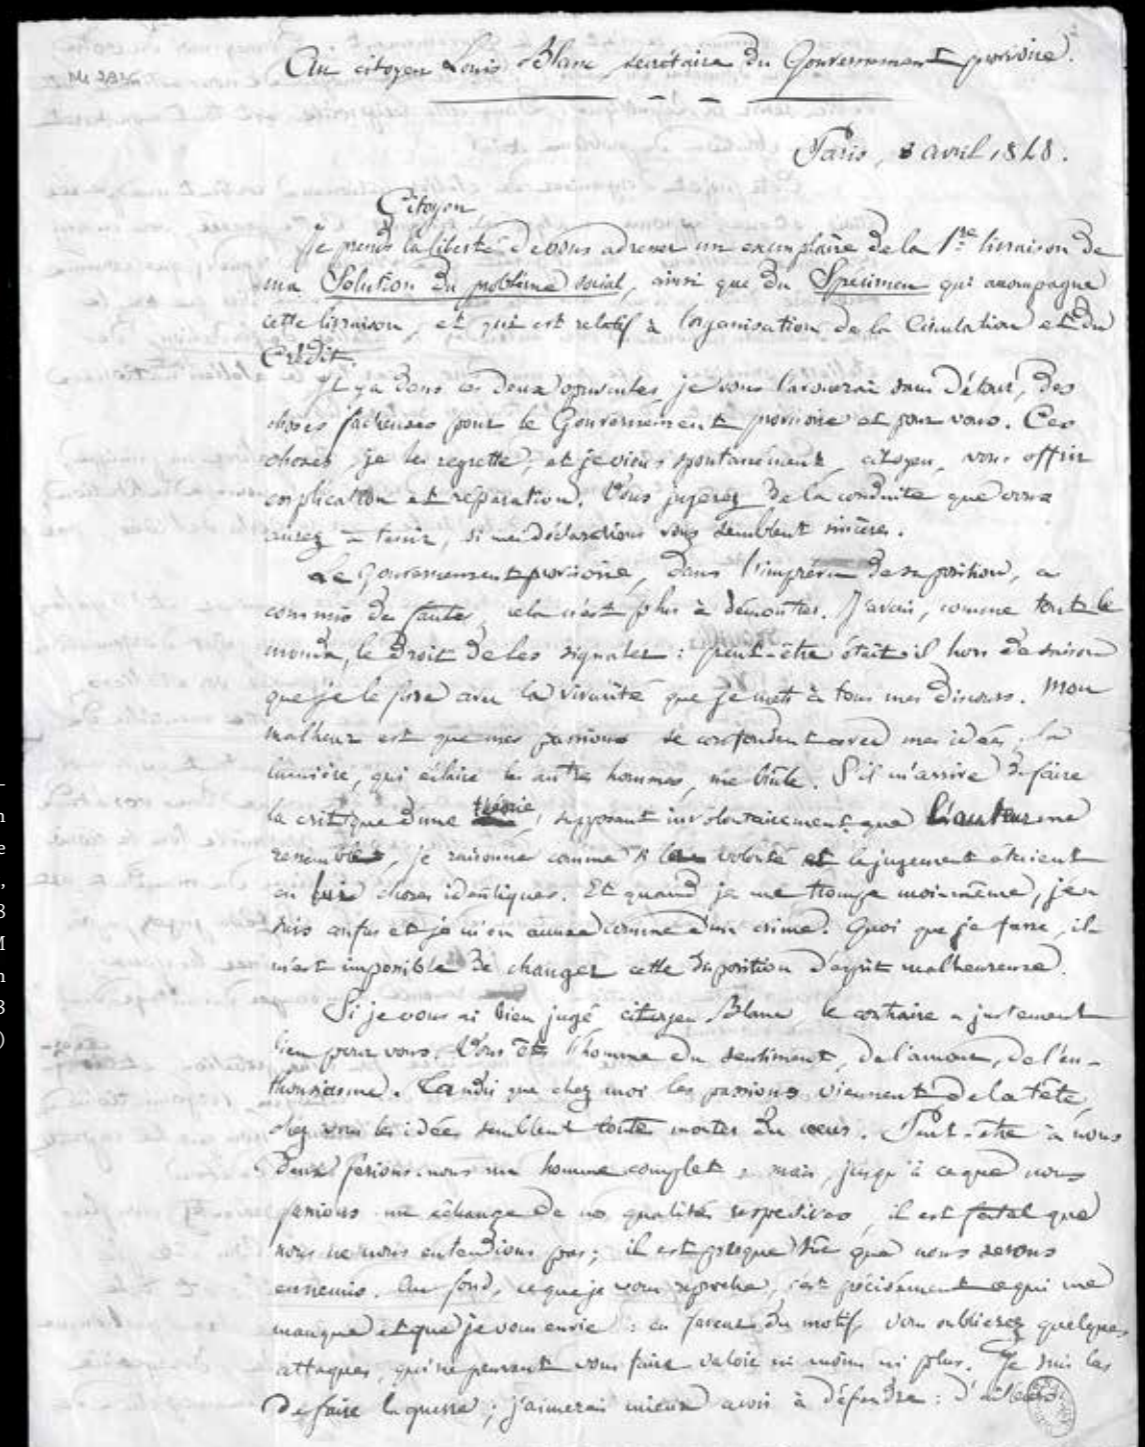 Au citoyen Louis Blanc, secrétaire du Gouvernement provisoire.
Paris, 8 avril 1848.
Citoyen,
Je prends la liberté de vous adresser un exemplaire de la 1re livraison de
ma Solution du problème social, ainsi que du Specimen qui accompagne
cette livraison, et qui est relatif à l'organisation de la Circulation et du
Crédit.
Il y a dans ces deux opuscules, je vous l'avouerai sans détour, des
choses fâcheuses pour le Gouvernement provisoire et pour vous. Ces
choses, je les regrette; et je viens spontanément, citoyen, vous offrir
explication et réparation. Vous jugerez de la conduite que vous
aurez à tenir, si mes déclarations vous semblent sincères.
Le Gouvernement provisoire, dans l'imprévu de sa position, a
commis des fautes, cela n'est plus à démontrer. J'avais, comme tout le
monde, le droit de les signaler : peut-être était-il hors de saison
que je le fisse avec la vivacité que je mets à tous mes discours. Mon
malheur est que mes passions se confondent avec mes idées ; la
lumière, qui éclaire les autres hommes, me brûle. S'il m'arrive de faire
la critique d'une théorie, supposant involontairement que l'auteur me
ressemble, je raisonne comme si volonté et le jugement étaient
en lui choses identiques. Et quand je me trompe moi-même, j'en
suis confus et je m'en accuse comme d'un crime. Quoi que je fasse, il
m'est impossible de changer cette disposition d'esprit malheureuse.
Si je vous ai bien jugé, citoyen Blanc, le contraire a justement
lieu pour vous. Vous êtes l'homme du sentiment, de l'amour, de l'en-
thousiasme. Tandis que chez moi les passions viennent de la tête,
chez vous les idées semblent toutes monter du cœur. Peut-être à nous
deux ferions-nous un homme complet ; mais, jusqu'à ce que nous
fassions un échange de nos qualités respectives, il est fatal que
nous ne nous entendions pas; il est presque sûr que nous serons
ennemis. Au fond, ce que je vous reproche, c'est précisément ce qui me
manque et que je vous envie : en faveur du motif, vous oublierez quelques
attaques, qui ne peuvent vous faire valoir ni moins ni plus. Je suis las
de faire la guerre ; j'aimerais mieux avoir à défendre : d'ailleurs